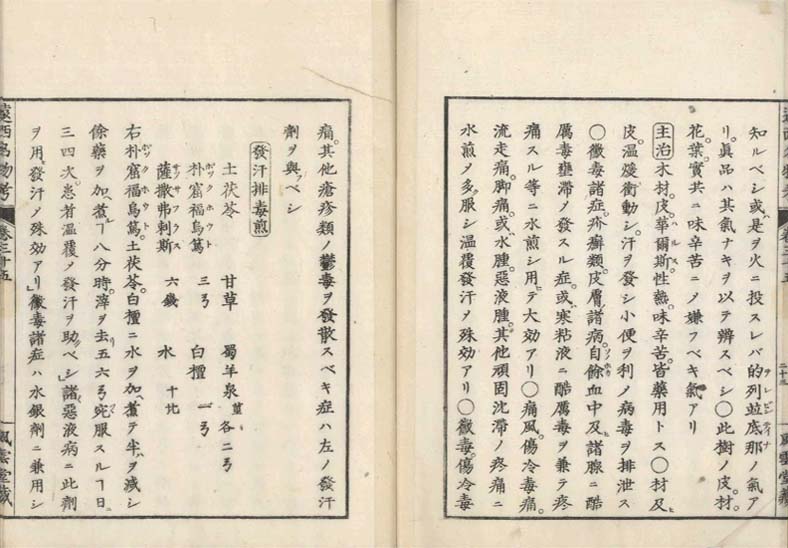 知ルベシ或ハ是ヲ火ニ投スレバ的列並底那ノ氣ア
リ。眞品ハ其氣ナキヲ以テ辨スベシ〇此樹ノ皮。材。
花。葉。實共ニ味辛苦ニメ嫌フベキ氣アリ
主治 木材。皮。華爾斯。性熱。味辛苦。皆藥用トス〇材及
皮。温煖衝動シ。汗ヲ發シ小便ヲ利ノ病毒ヲ排泄ス
〇黴毒諸症。疥癬類。皮膚諸病。自餘血中及諸腺ニ酷
厲毒壅滞ノ發スル症。或寒粘液ニ酷厲毒ヲ兼テ疼
痛スル等ニ水煎シ用テ大効アリ〇痛風。傷冷毒痛。
流走痛。脚痛。或水腫。惡液腫。其他頑固沈滞ノ疼痛ニ
水煎ノ多服シ温覆發汗ノ殊効アリ〇黴毒。傷冷毒
痛。其他瘡疹類ノ鬱毒ヲ發散スベキ症ハ左ノ發汗
劑ヲ與ベシ
發汗排毒煎
土茯苓 甘草 蜀羊泉莖 各二ㄢ
朴窟福烏篤 三ㄢ 白檀 一ㄢ
薩撒弗剌斯 六錢 水 十比
右朴窟福烏篤。土茯苓。白檀ニ水ヲ加煮テ半ヲ減シ
餘藥ヲ加煮ヿ八分時。滓ヲ去五六弓宛服スルヿ日ニ
三四次。患者温覆ノ發汗ヲ助ベシ諸惡液病ニ此劑
ヲ用發汗ノ殊効アリ黴毒諸症ハ水銀劑ニ兼用シ
遠西名物考
卷三十五
風雲堂藏